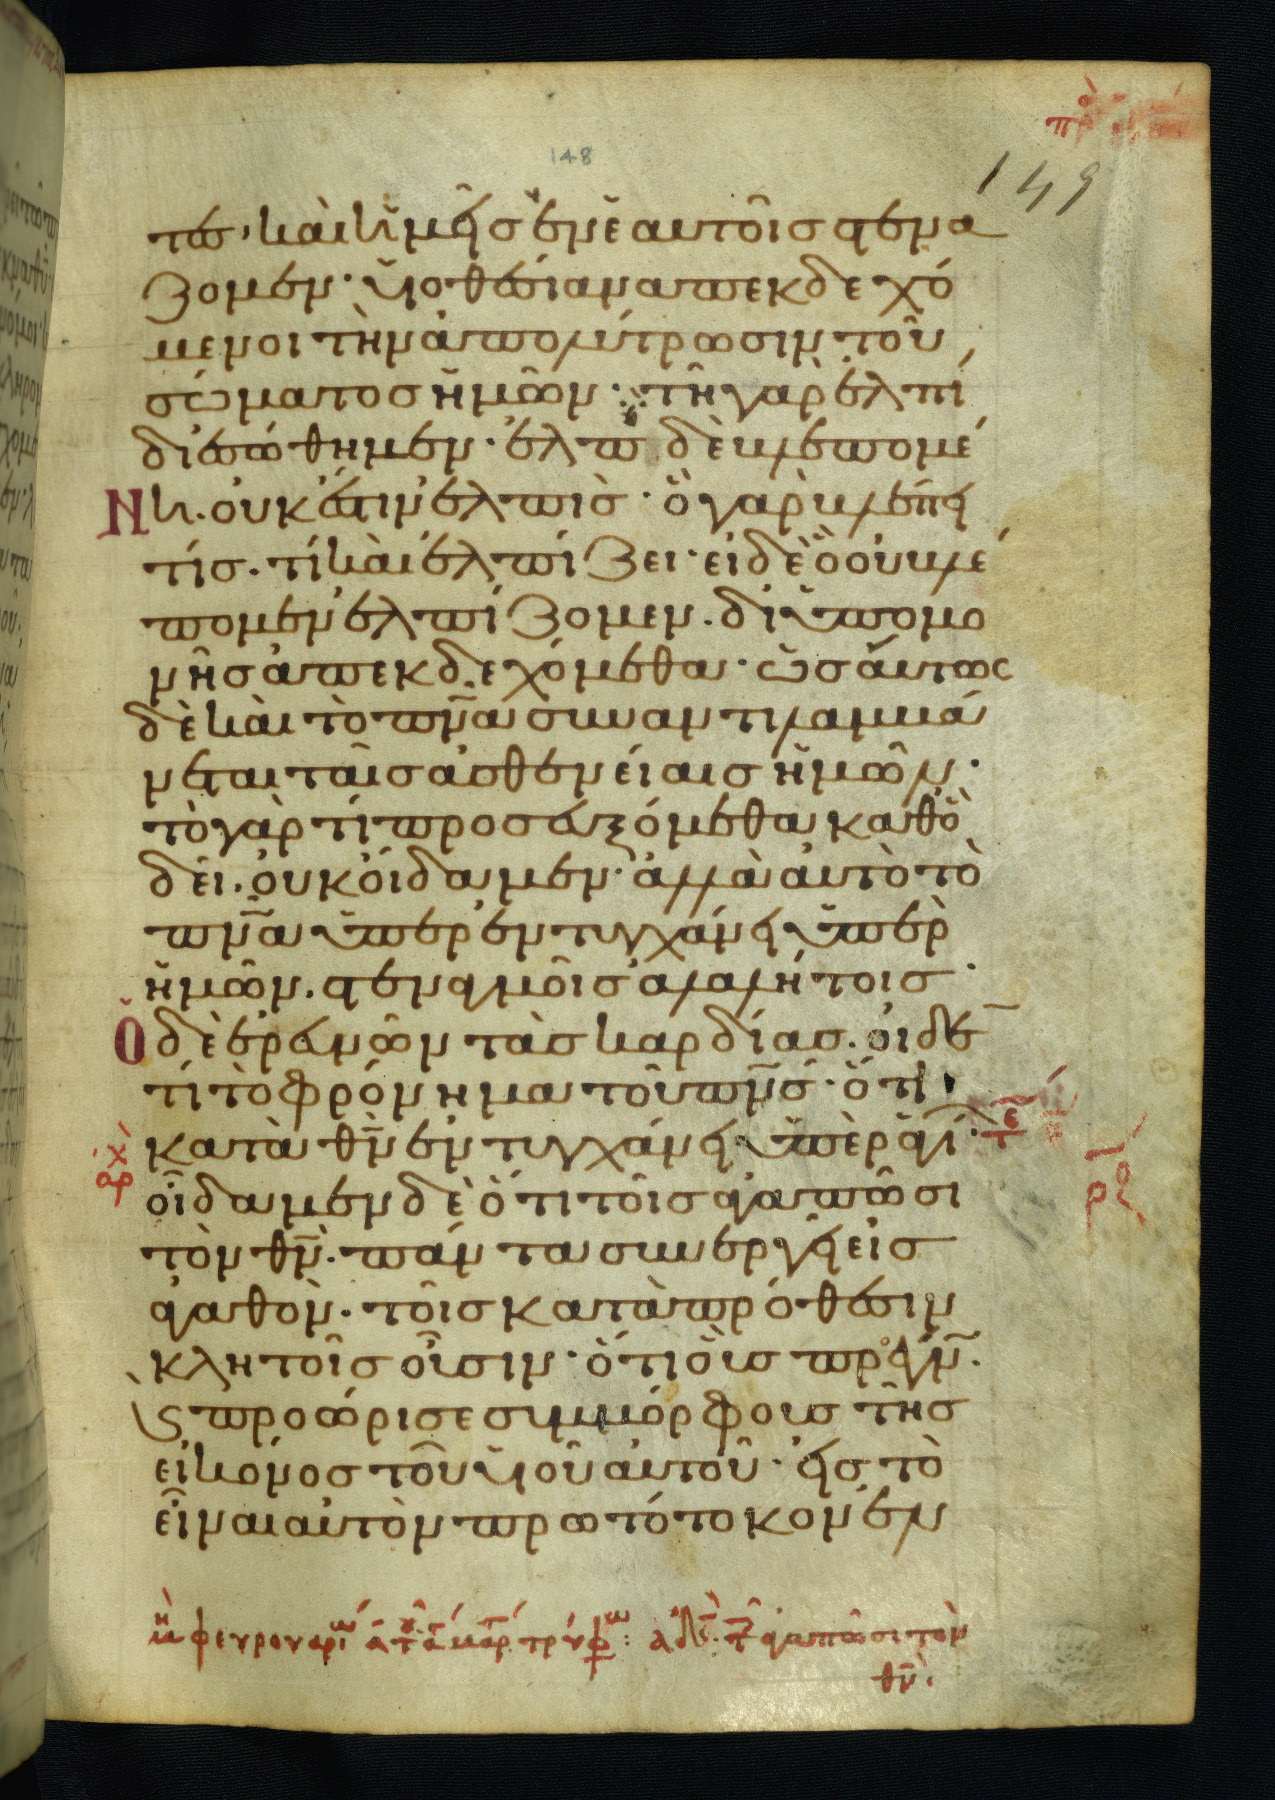 148
149
τος· καὶ ἡμεῖς ἐν ἑαυτοῖς στενά
ζομεν· υἱοθεσίαν ἀπεκδεχό
μενοι τὴν ἀπολύτρωσιν τοῦ
σώματος ἡμῶν· τῇ γὰρ ἐλπί
δι ἐσώθημεν· ἐλπὶς δὲ βλεπομέ
νη. οὐκ ἔστιν ἐλπίς· ὃ γὰρ βλέπει
τίς. τί καὶ ἐλπίζει· εἰ δὲ ὃ οὐ βλέ
πομεν ἐλπίζομεν. δι' ὑπομο
νῆς ἀπεκδεχόμεθα· ὡσαύτως
δὲ καὶ τὸ πνα συναντιλαμβά
νεται ταῖς ἀσθενείαις ἡμῶν·
τὸ γὰρ τί προσευξόμεθα καθὸ
δεῖ. οὐκ οἴδαμεν· ἀλλὰ αὐτὸ τὸ
πνα ὑπερεντυγχάνει ὑπὲρ
ἡμῶν. στεναγμοῖς ἀλαλήτοις·
Ὁ δὲ ἐρευνῶν τὰς καρδίας. οἶδε
τί τὸ φρόνημα τοῦ πνς· ὅτι
κατὰ θν ἐντυγχάνει ὑπὲρ ἁγί·
οἴδαμεν δὲ ὅτι τοῖς ἀγαπῶσι
τὸν θν. πάντα συνεργεῖ εἰς
ἀγαθὸν. τοῖς κατὰ πρόθεσιν
κλητοῖς οὖσιν· ὅτι οὓς προέγν.
κ προώρισε συμμόρφους τῆς
εἰκόνος τοῦ υἱοῦ αὐτοῦ· εἰς τὸ
εἶναι αὐτὸν πρωτότοκον ἐν
ἀρχ
τε
μη φευρουαρίω α τ ἁ μάρ τρύφω: ἀδελ. τ ἀγαπῶσι τὸν
θν·